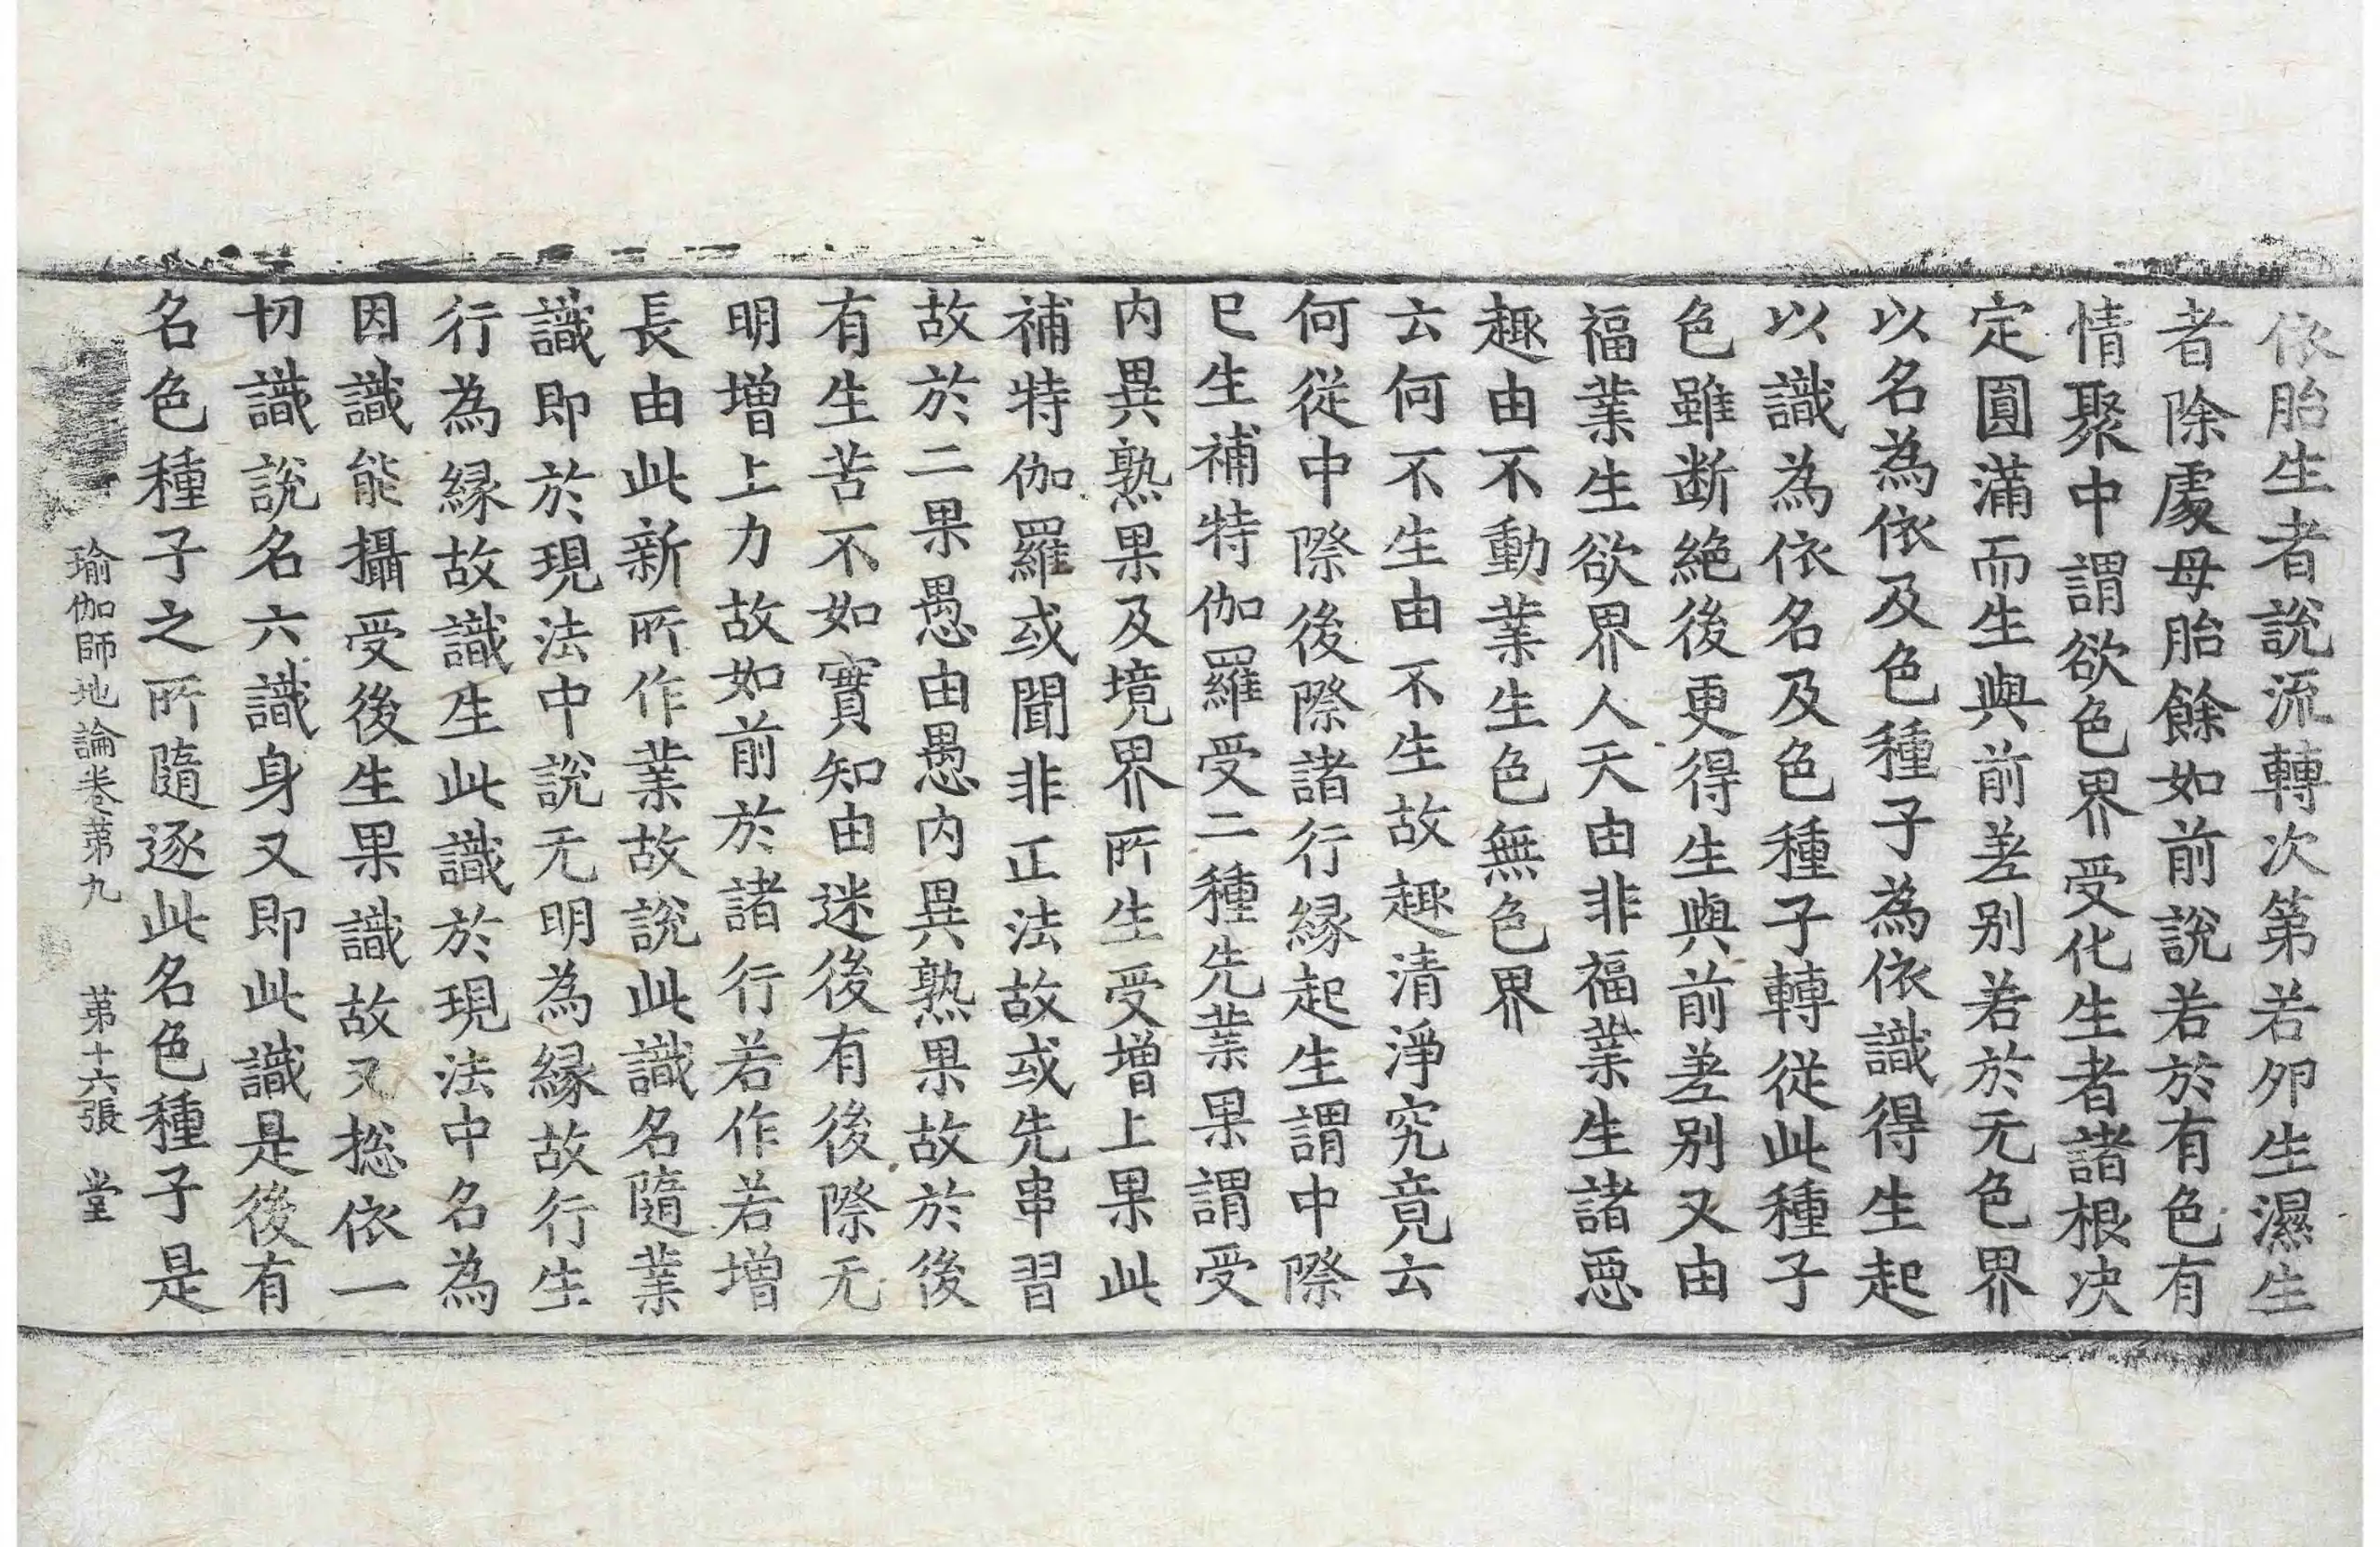 依胎生者說流轉次第若夘生濕生
者除處母胎餘如前說若於有色有
情聚中謂欲色界受化生者諸根决
定圓滿而生與前差别若於无色界
以名為依及色種子為依識得生起
以識為依名及色種子轉從此種子
色雖断絶後更得生與前差别又由
福業生欲界人天由非福業生諸惡
趣由不動業生色無色界
云何不生由不生故趣清淨究竟云
何從中際後際諸行縁起生謂中際
已生補特伽羅受二種先業果謂受
内異熟果及境界所生受增上果此
補特伽羅或聞非正法故或先串習
故於二果愚由愚内異熟果故於後
有生苦不如實知由迷後有後際无
明增上力故如前於諸行若作若增
長由此新所作業故說此識名隨業
識即於現法中說无明為縁故行生
行為縁故識生此識於現法中名為
因識能攝受後生果識故又捴依一
切識說名六識身又即此識是後有
名色種子之所隨逐此名色種子是
瑜伽師地論卷第九 第十六張 堂